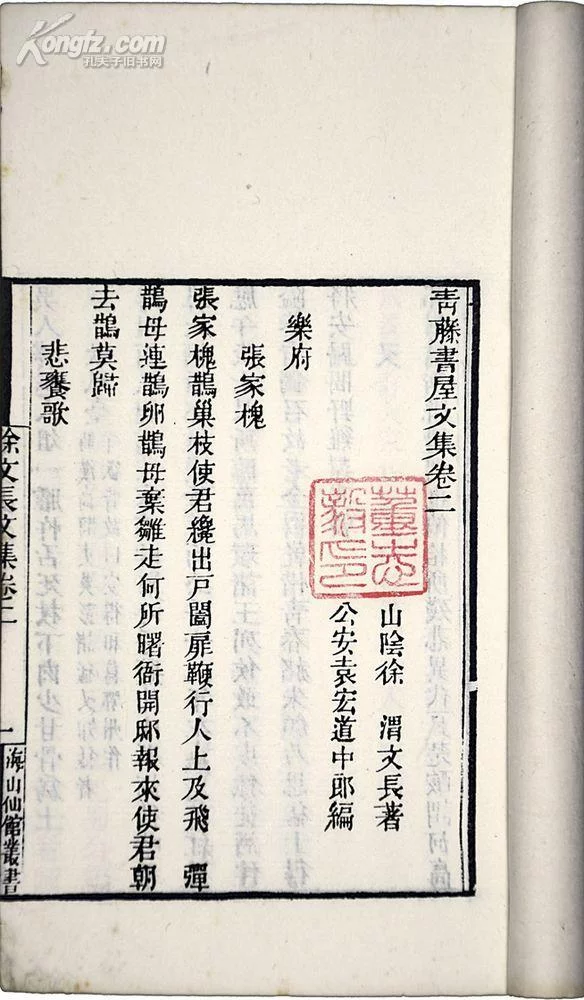 Kongfz.com
孔夫子旧书网
青藤書屋文集卷二
山陰徐 渭文長著
公安袁宏道中郎編
樂府
張家槐
張家槐鵲巢枝使君纔出戸闔扉鞭行人上及飛彈
鵲母連鵲卵鵲母棄雛走何所曙衙開邸報來使君朝
去鵲莫歸
悲饔歌
徐文長文集卷二
一
海山仙館叢書